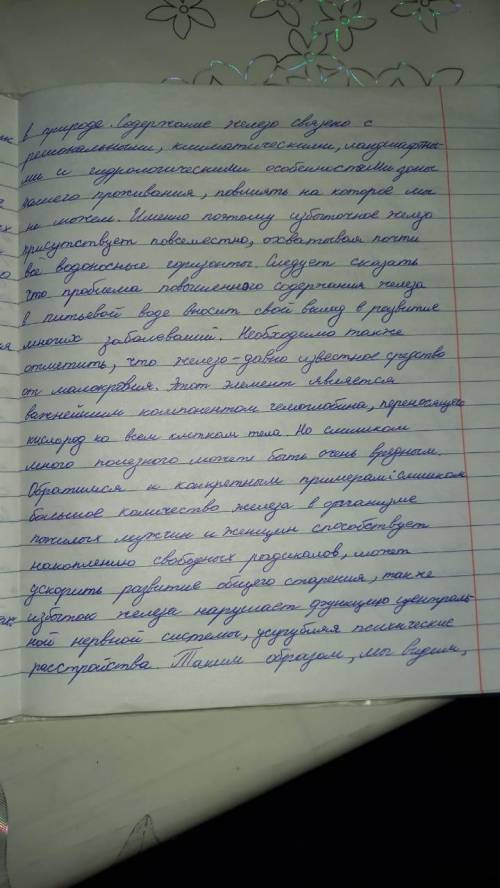 в природе. Содержание железо связено с
региональными, климатическими, ландшафтны-
ми и гидрологическими особенностями зоны
нашего проживания, повлиять на которое мы
не можем. Именно поэтому избыточное железо
присутствует повсеместно, охватывая почти
все водоносные горизонты. Следует сказать
что проблема повышенного содержания железа
в питьевой воде вносит свой вклад в развитие
многих заболеваний. Необходимо также
отметить, что железо - давно известное средство
от малокровия. Этот элемент является
важнейшим компонентом гемоглобина, переносящего
кислород ко всем клеткам тела. Но слишком
много полезного может быть очень вредным.
Обратимся к конкретным примерам: Слишком
большое количество железа в организме
пожилых мужчин и женщин способствует
накоплению свободных радикалов, может
ускорить развитие общего старения, также
избыток железа нарушает функцию централь-
ной нервной системы, усугубляя психические
расстройства. Таким образом, мы видим,